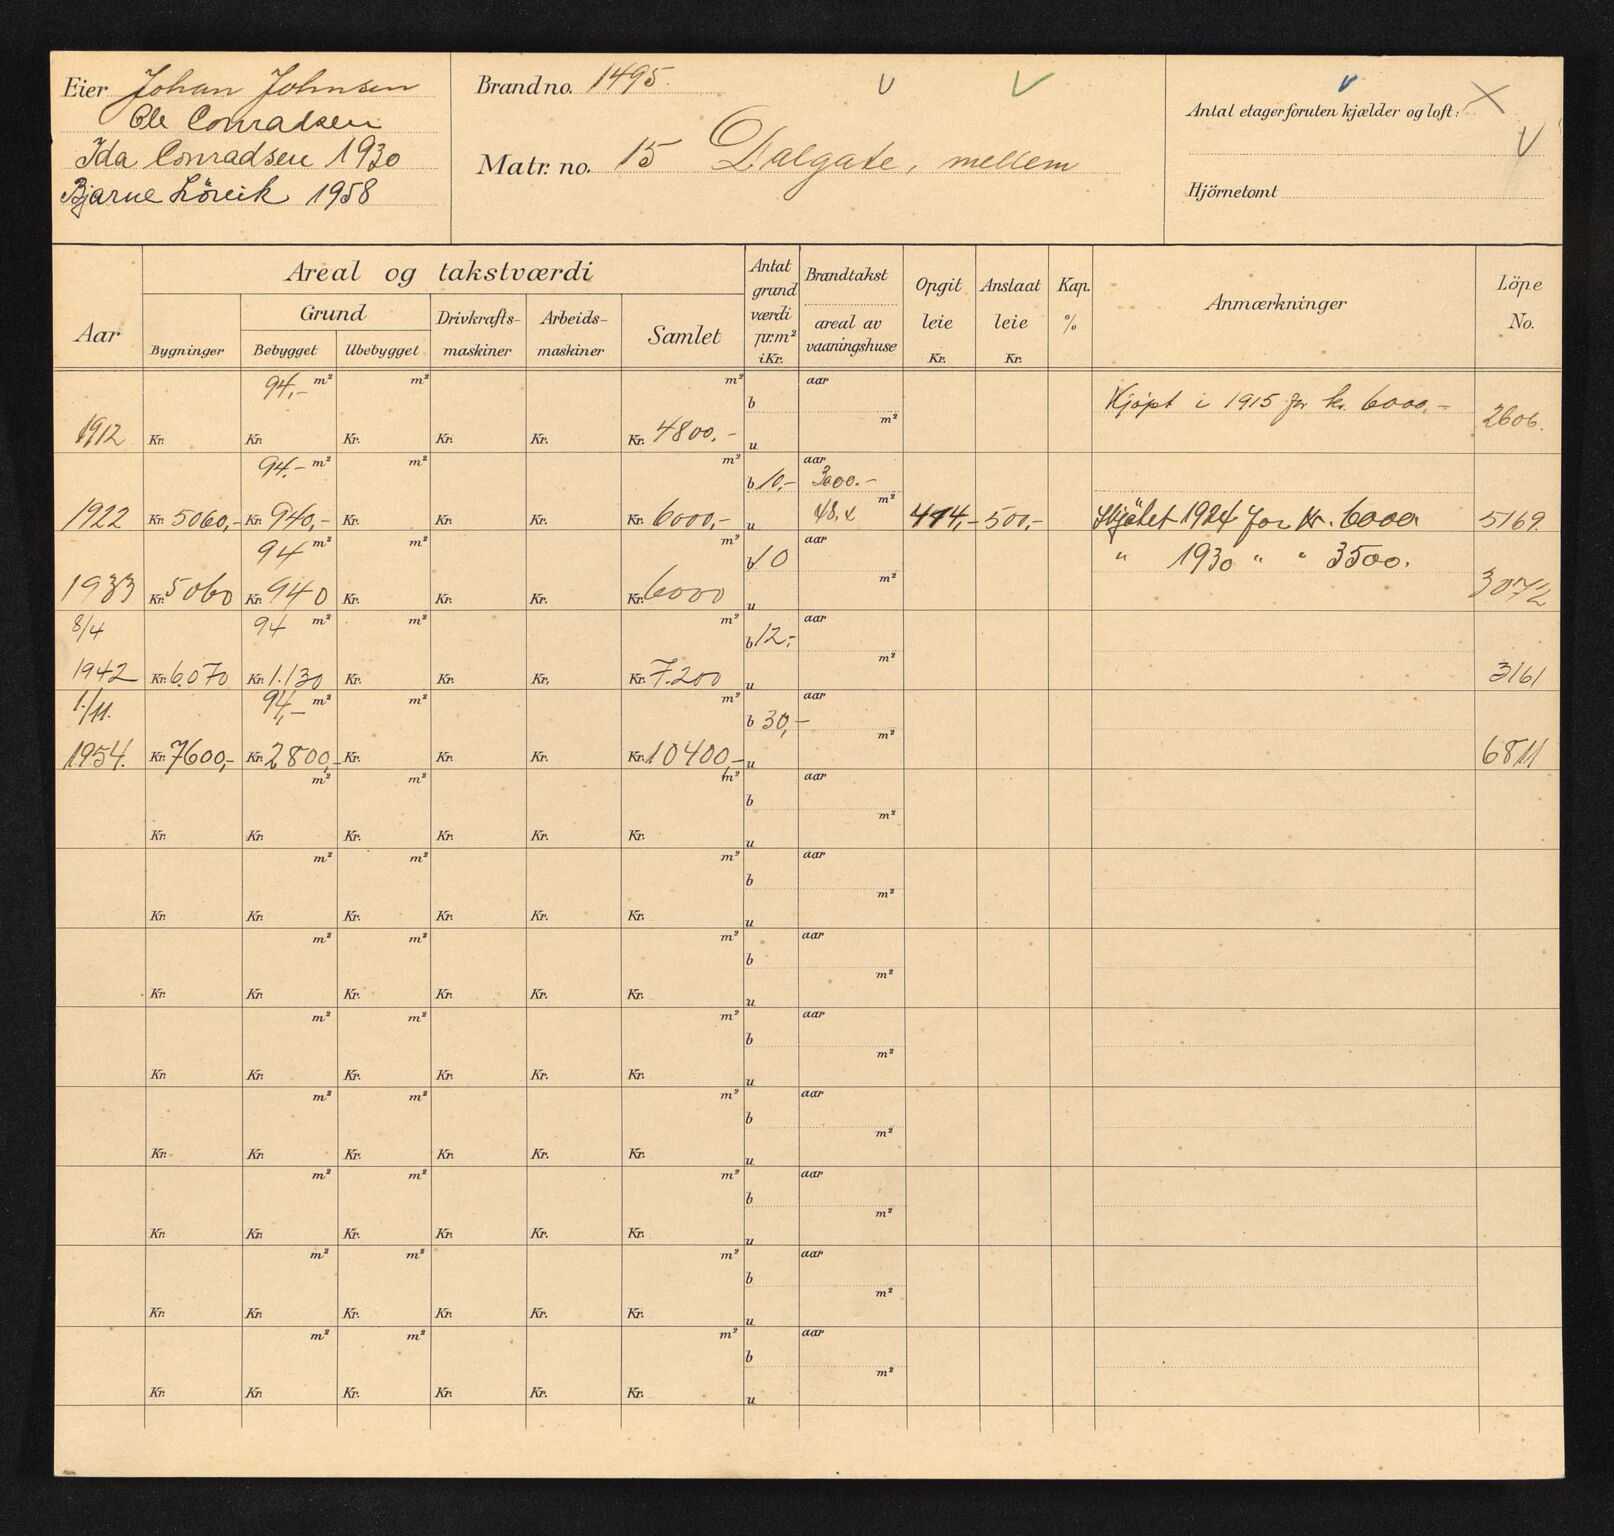 Eier Johan Johnsen
Ole Conradsen
Ida Conradsen 1930
Bjarne Lövik 1958
Brand no. 1495.
Matr. no. 15 Dalgate, mellem
Antal etager foruten kjælder og loft:
Hjörnetomt
Aar
Areal og takstværdi
Bygninger
Grund
Bebygget Ubebygget
Drivkrafts-maskiner
Arbeids-maskiner
Samlet
Antat grund værdi pr. m² i Kr.
Brandtakst
areal av vaaningshuse
Opgit leie Kr.
Anslaat leie Kr.
Kap. %
Anmærkninger
Löpe No.
94,- m² m² m² b aar
m²
1912 Kr. Kr. Kr. Kr. Kr. Kr. 4800,- u Kjøpt i 1915 for kr. 6000,- 2606.
94,- m² m² m² b 10,- aar 3000.-
m²
1922 Kr. 5060,- Kr. 940,- Kr. Kr. Kr. Kr. 6000,- u 48, 414,- 500,- Skjøtet 1924 for Kr. 6000 5169.
94 m² m² m² b 10 aar " 1930 " " 3500.
m²
1933 Kr. 5060 Kr. 940 Kr. Kr. Kr. Kr. 6000 u 3072
8/4 94 m² m² m² b 12,- aar
m²
1942 Kr. 6070 Kr. 1.130 Kr. Kr. Kr. Kr. 7.200 u 3161
1./11. 94,- m² m² m² b 30,- aar
m²
1954. Kr. 7600,- Kr. 2800,- Kr. Kr. Kr. Kr. 10400,- u 6811
m² m² m² b aar
m²
Kr. Kr. Kr. Kr. Kr. Kr. u
m² m² m² b aar
m²
Kr. Kr. Kr. Kr. Kr. Kr. u
m² m² m² b aar
m²
Kr. Kr. Kr. Kr. Kr. Kr. u
m² m² m² b aar
m²
Kr. Kr. Kr. Kr. Kr. Kr. u
m² m² m² b aar
m²
Kr. Kr. Kr. Kr. Kr. Kr. u
m² m² m² b aar
m²
Kr. Kr. Kr. Kr. Kr. Kr. u
m² m² m² b aar
m²
Kr. Kr. Kr. Kr. Kr. Kr. u
m² m² m² b aar
m²
Kr. Kr. Kr. Kr. Kr. Kr. u